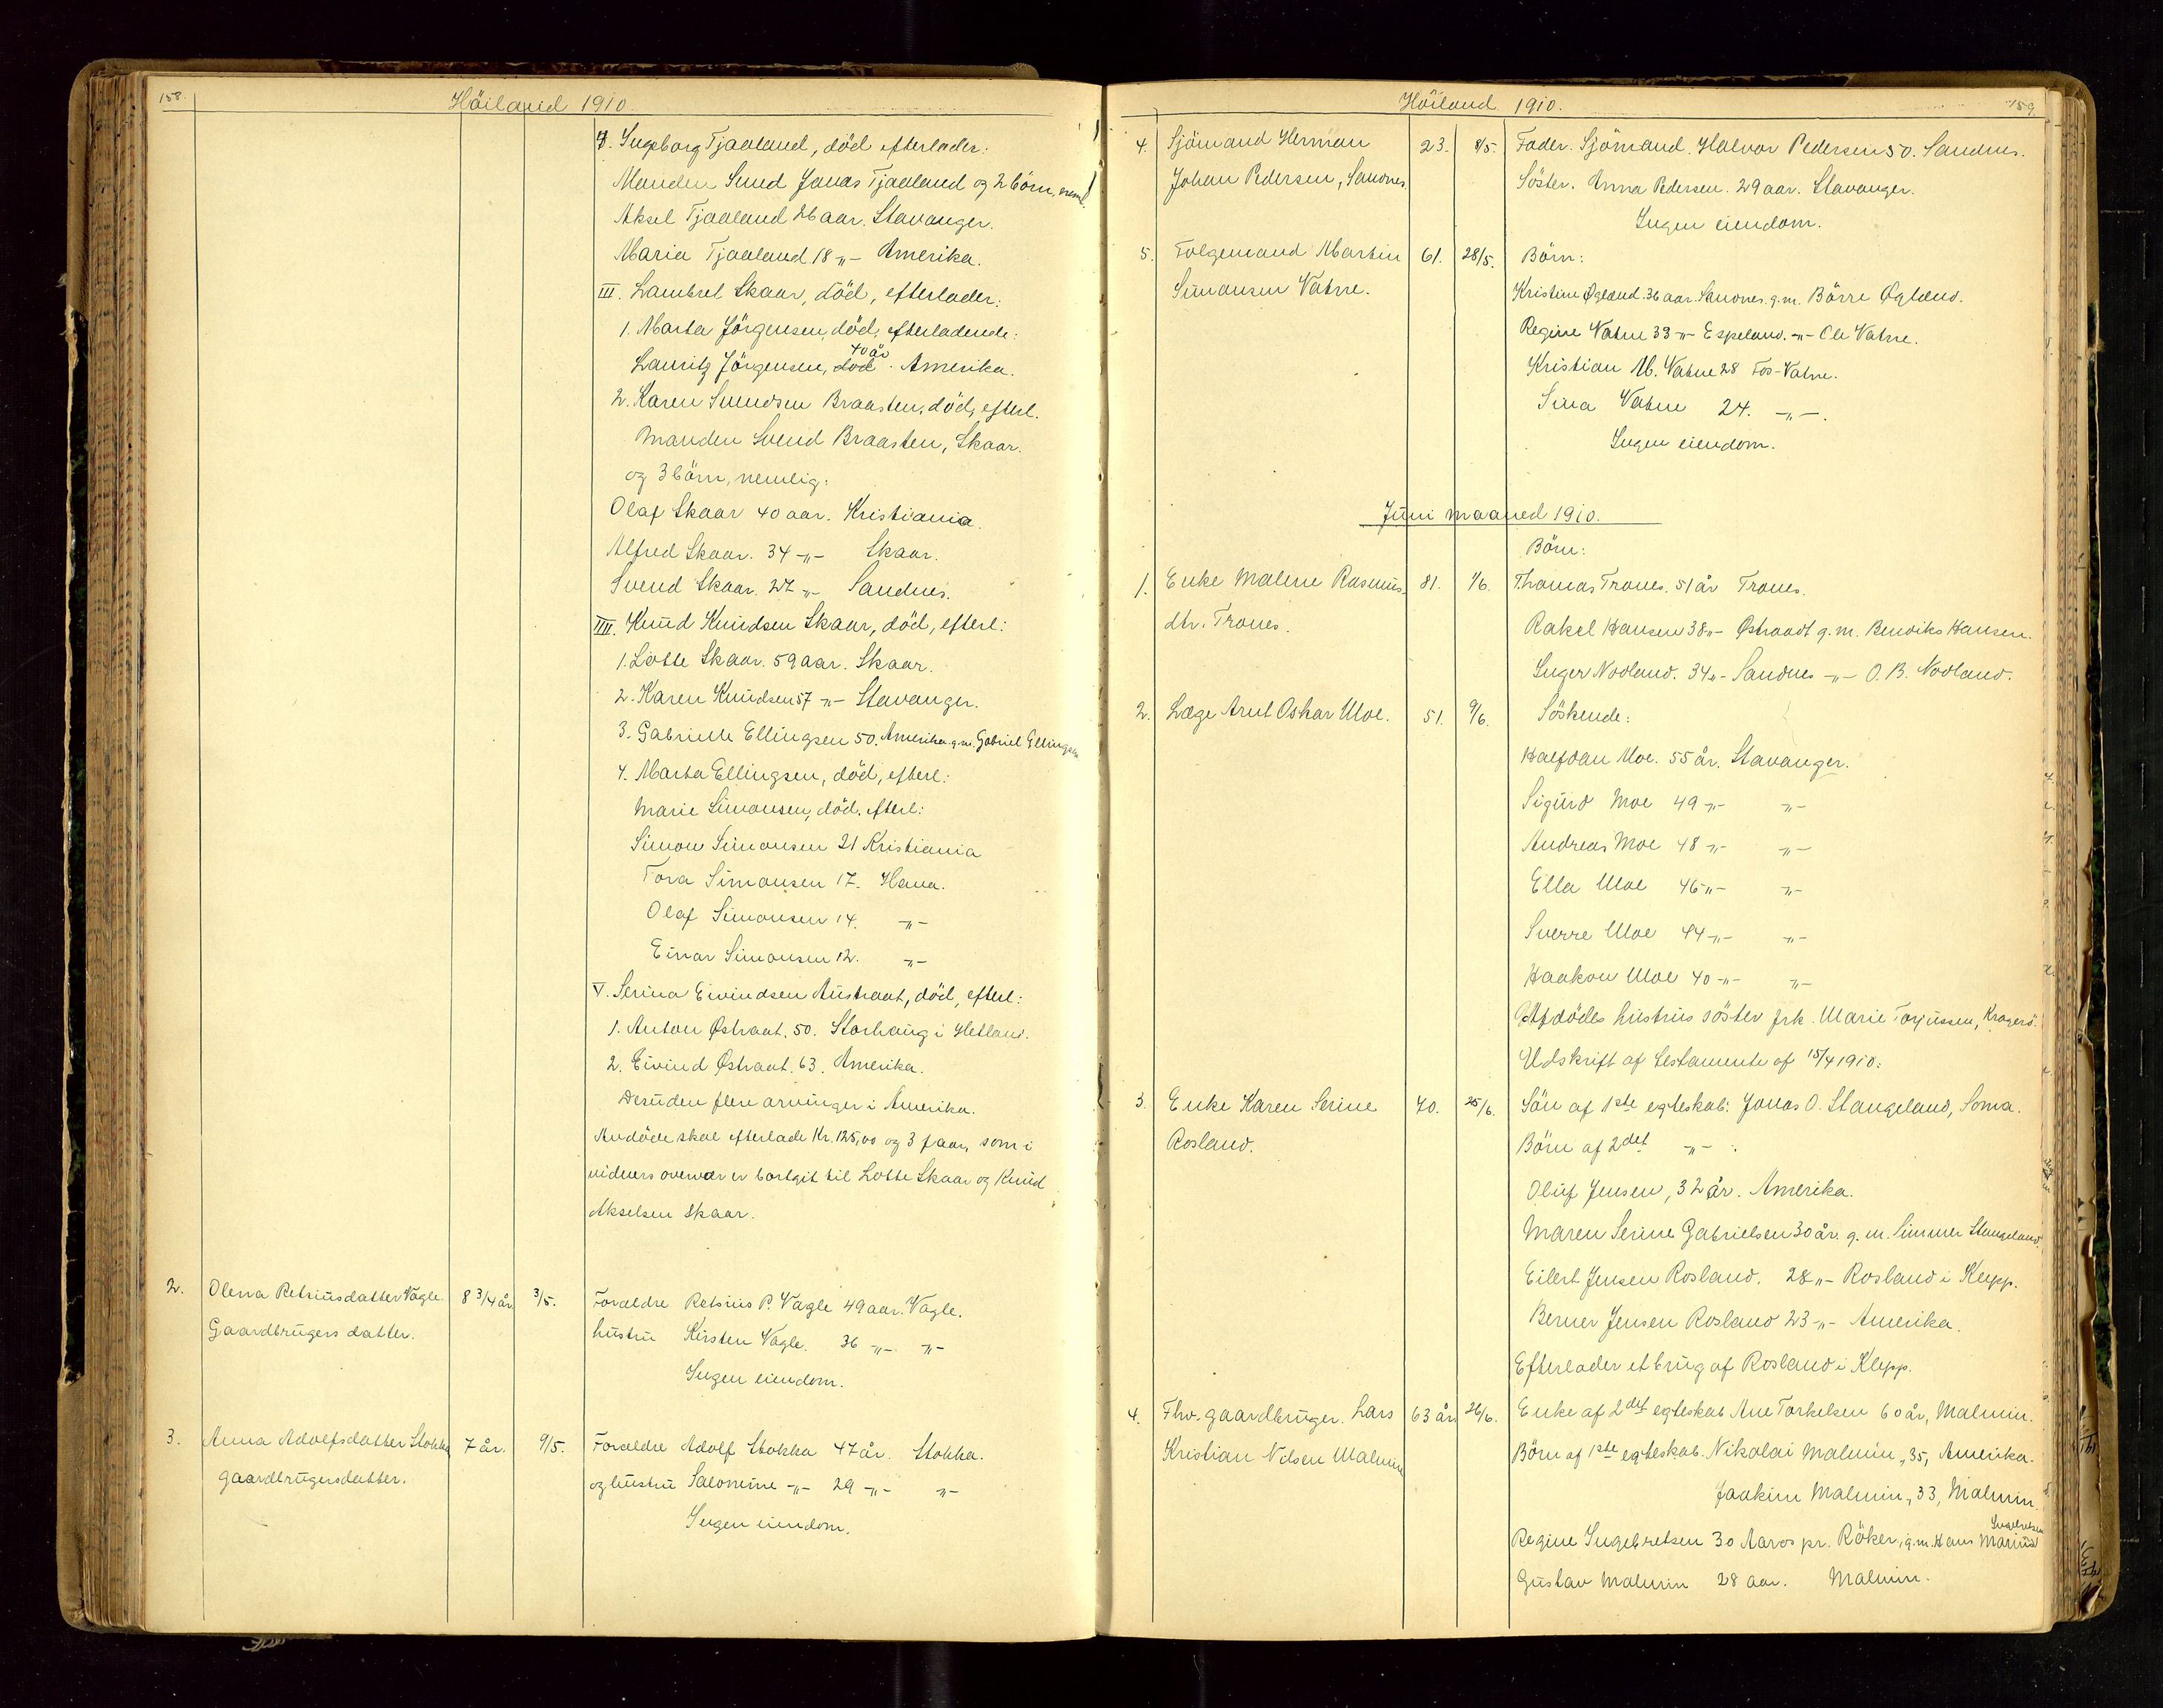 158.
Höiland 1910
7. Ingeborg Tjaaland, död efterlader:
Manden Svend Jonas Tjaaland og 2 börn, neml.
Aksel Tjaaland 26 aar. Stavanger.
Maria Tjaaland 18 -"- Amerika.
III. Lambret Skaar, död, efterlader:
1. Marta Jörgensen, död, efterladende:
40 år
Lauritz Jörgensen, död. Amerika.
2. Karen Svendsen Braasten, död, efterl.
Manden Svend Braasten, Skaar.
og 3 börn, nemlig:
Olaf Skaar 40 aar. Kristiania.
Alfred Skaar. 34 -"- Skaar.
Svend Skaar. 27 -"- Sandnes.
IIII. Knud Knudsen Skaar, död, efterl:
1. Lotte Skaar. 59 aar. Skaar.
2. Karen Knudsen 57 -"- Stavanger.
3. Gabrielle Ellingsen 50. Amerika g.m. Gabriel Ellingsen
4. Marta Ellingsen, död, efterl:
Marie Simonsen, död. efterl:
Simon Simonsen 21 Kristiania
Tora Simonsen 17. Hana.
Olaf Simonsen 14. -"-
Einar Simonsen 12. -"-
V. Serina Eivindsen Austraat, död, efterl:
1. Anton Østraat. 50. Storhaug i Hetland.
2. Eivind Østraat. 63. Amerika.
Desuden flere arvinger i Amerika.
Avdöde skal efterlade Kr. 125,00 og 3 faar, som i
vidners overvær er bortgit til Lotte Skaar og Knud
Akselsen Skaar.
2. Olena Petriusdatter Vagle. 8 3/4 år 3/5. Forældre Petrius P. Vagle 49 aar. Vagle.
Gaardbrugers datter. hustru Kirsten Vagle. 36 -"- -"-
Ingen eiendom.
3. Anna Adolfsdatter Stokka 7 år. 9/5. Forældre Adolf Stokka 47 år. Stokka.
gaardbrugersdatter. og hustru Salomine -"- 29 -"- -"-
Ingen eiendom.
Höiland 1910.
159
4. Sjömand Herman 23. 8/5. Fader. Sjömand. Halvor Pedersen 50. Sandnes.
Johan Pedersen, Sandnes. Söster. Anna Pedersen. 29 aar. Stavanger.
Ingen eiendom.
5. Folgemand Martin 61. 28/5. Börn:
Simonsen Vatne. Kristine Øgland. 36 aar. Sandnes. g.m. Börre Øgland.
Regine Vatne 33 -"- Espeland. -"- Ole Vatne.
Kristian M. Vatne 28 Fos-Vatne.
Sina Vatne 24. -"-.
Ingen eiendom.
Juni maaned 1910.
Börn:
1. Enke Malene Rasmus- 81. 1/6. Thomas Trones. 51 år Trones.
dtr. Trones. Rakel Hansen 38 -"- Østraadt g.m. Bendiks Hansen.
Inger Nodland. 34 -"- Sandnes -"- O. B. Nodland.
2. Læge Arnt Oskar Moe. 51. 9/6. Söskende:
Halfdan Moe. 55 år. Stavanger.
Sigurd Moe 49 -"- -"-
Andreas Moe 48 -"- -"-
Ella Moe 46 -"- -"-
Sverre Moe 44 -"- -"-
Haakon Moe 40 -"- -"-
Afdödes hustrus söster frk. Marie Torjussen, Kragerö.
Udskrift af testamente af 15/4 1910:
3. Enke Karen Serine 70. 25/6. Sön af 1ste egteskab: Jonas O. Stangeland, Soma.
Rosland. Börn af 2det -"- :
Oluf Jensen, 32 år. Amerika.
Maren Serine Gabrielsen 30 år. g.m. Simmer Stangeland.
Eilert Jensen Rosland. 28 -"- Rosland i Klepp.
Berner Jensen Rosland 23 -"- Amerika.
Efterlader et brug af Rosland i Klepp.
4. Fhv. gaardbruger. Lars 63 år 26/6. Enke af 2det egteskab Ane Torkelsen 60 år, Malmin.
Kristian Nilsen Malmin Börn af 1ste egteskab. Nikolai Malmin, 35, Amerika.
Joakim Malmin, 33, Malmin.
Ingebretsen
Regine Ingebretsen 30 Aaros pr. Röken, g.m. Hans Marius
Gustav Malmin 28 aar. Malmin.